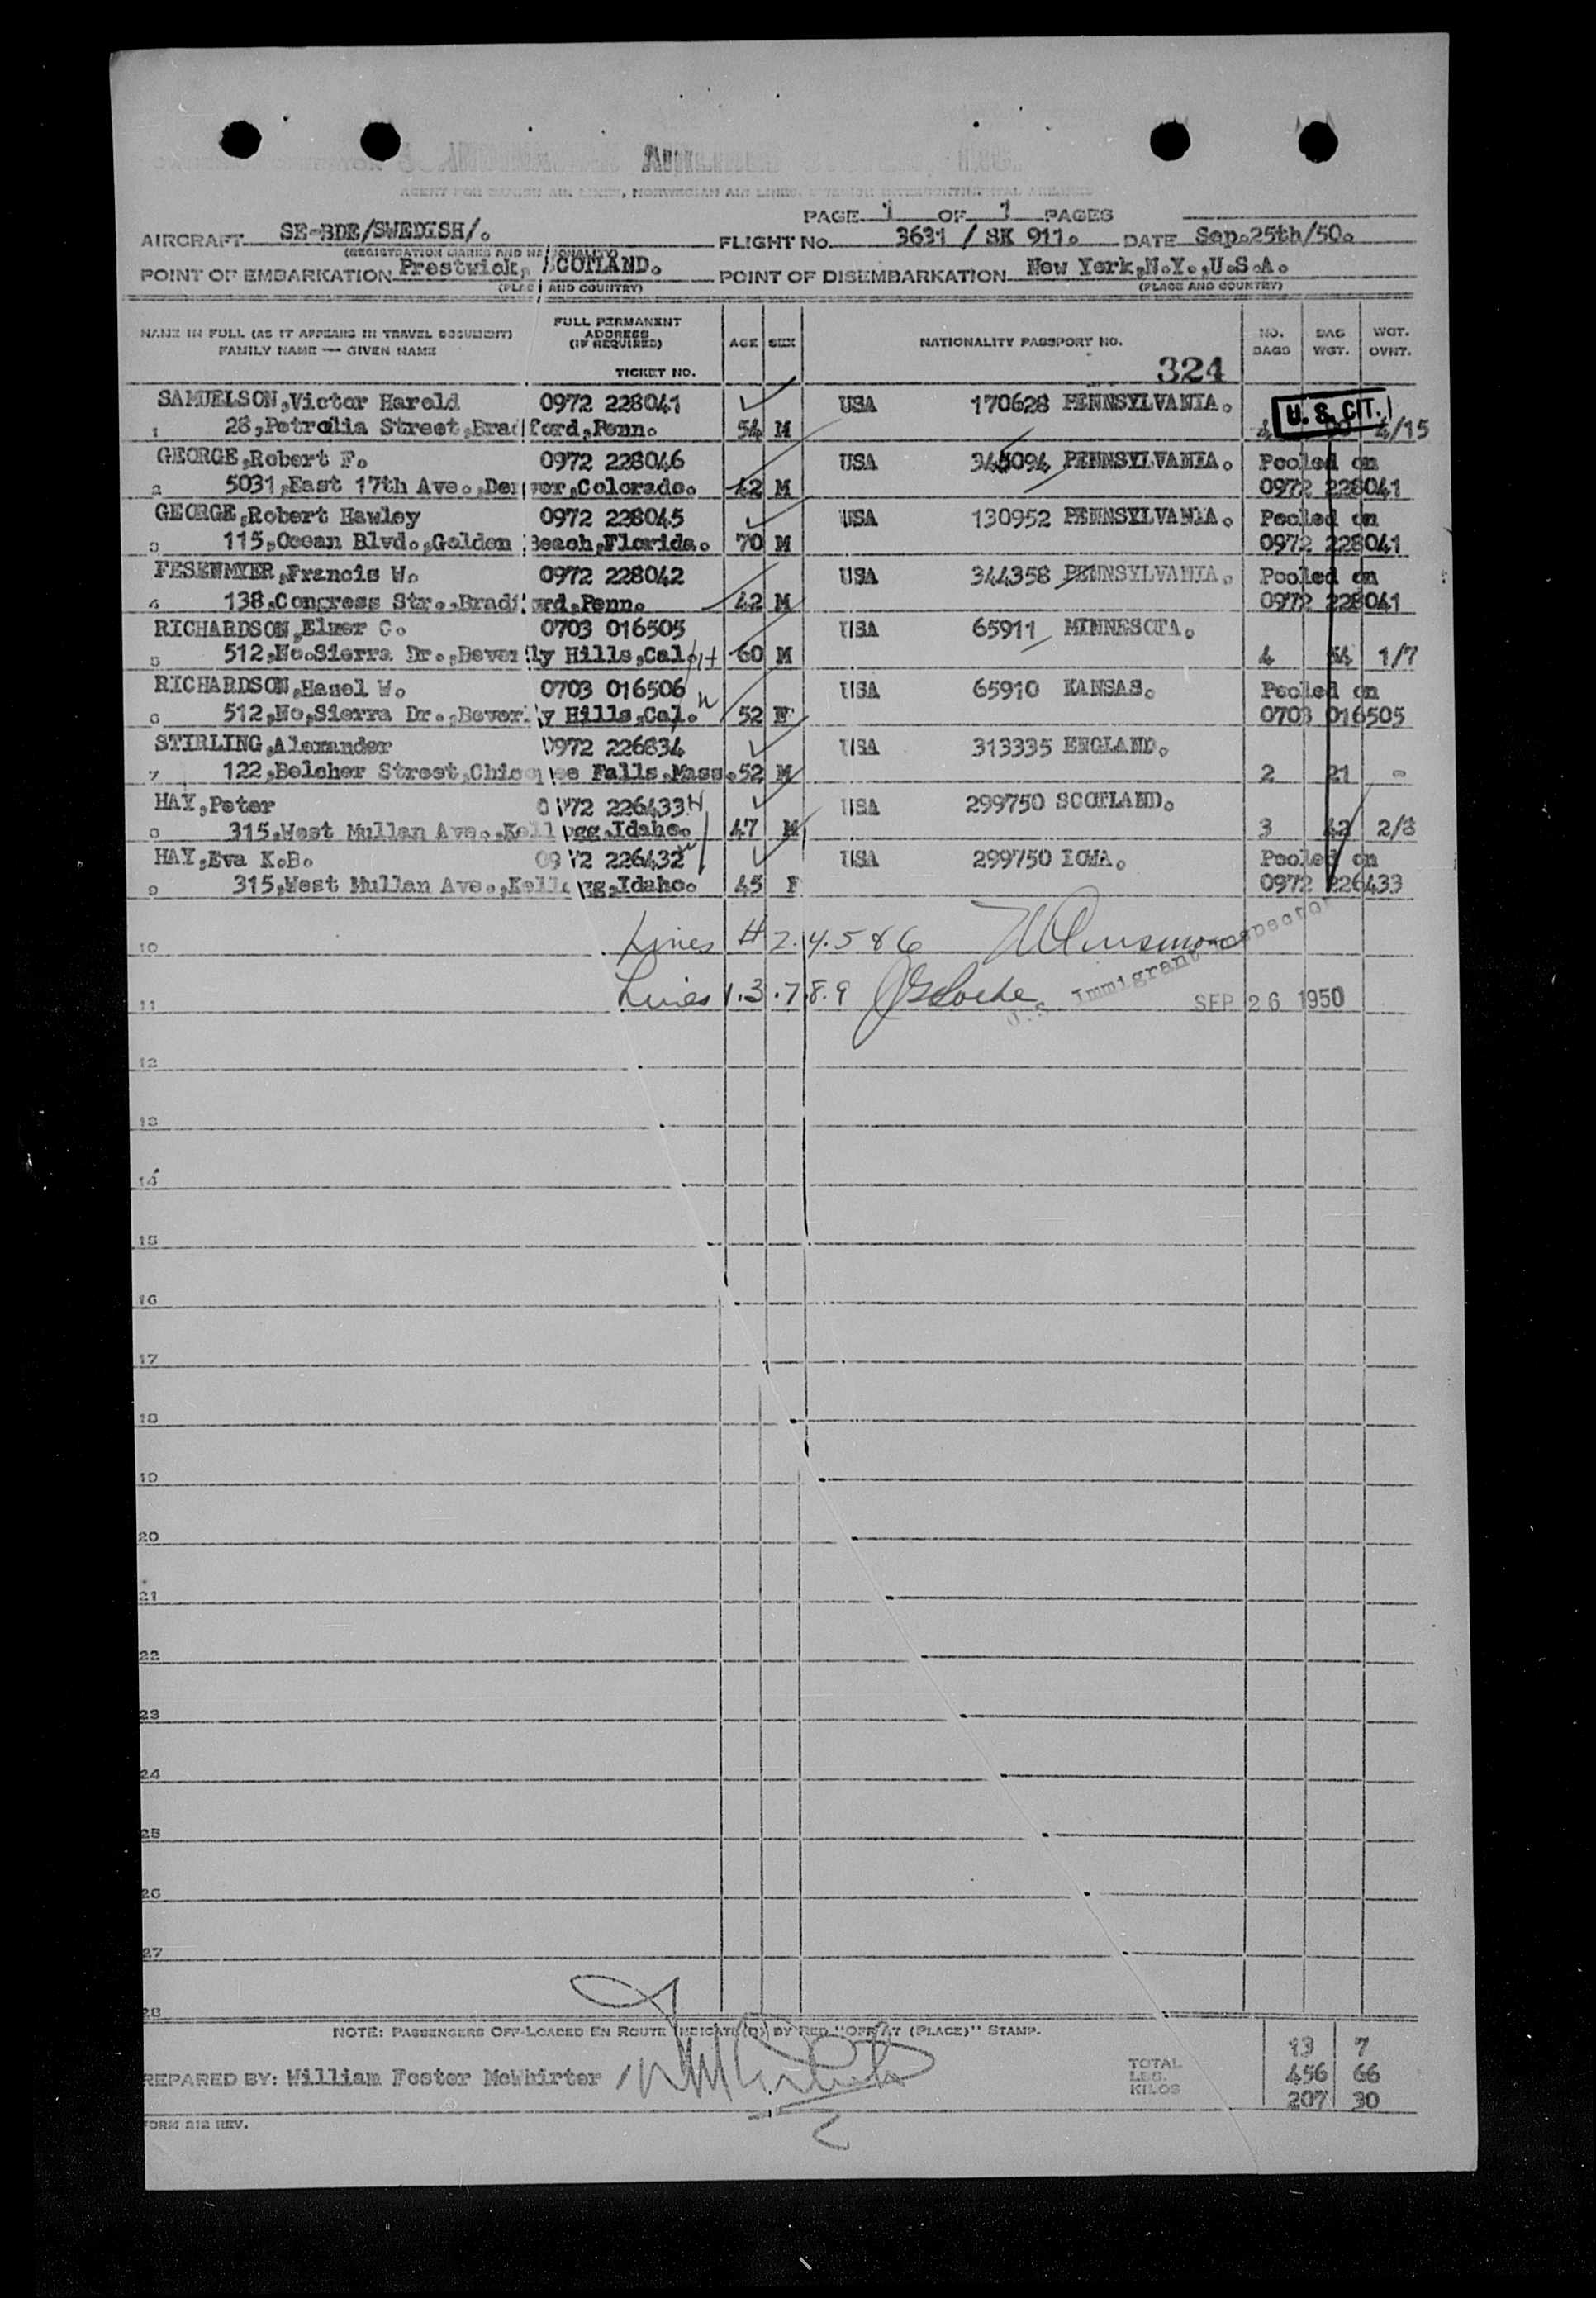 AIRLINES
AGENT FOR DANISH AIR LINES, NORWEGIAN AIR LINES, SWEDISH INTERCONTINENTAL AIRLINES
PAGE 1 OF 1 PAGES
AIRCRAFT SE-BDE/SWEDISH/. FLIGHT NO. 3631 / SK 911. DATE Sep.25th/50.
(REGISTRATION MARKS AND NATIONALITY)
POINT OF EMBARKATION Prestwick, SCOTLAND. POINT OF DISEMBARKATION New York,N.Y.,U.S.A.
(PLACE AND COUNTRY) (PLACE AND COUNTRY)
NAME IN FULL (AS IT APPEARS IN TRAVEL DOCUMENT) FAMILY NAME — GIVEN NAME FULL PERMANENT ADDRESS (IF REQUIRED) TICKET NO. AGE SEX NATIONALITY PASSPORT NO. NO. BAGS BAG WGT. WGT. OVHT.
324
SAMUELSON,Victor Harold 0972 228041 USA 170628 PENNSYLVANIA. U.S. CIT.
1 28,Petrolia Street,Bradford,Penn. 54 M 4 4/15
GEORGE,Robert F. 0972 228046 USA 345094 PENNSYLVANIA. Pooled on
2 5031,East 17th Ave.,Denver,Colorado. 42 M 0972 228041
GEORGE,Robert Hawley 0972 228045 USA 130952 PENNSYLVANIA. Pooled on
3 115,Ocean Blvd.,Golden Beach,Florida. 70 M 0972 228041
FESENMYER,Francis W. 0972 228042 USA 344358 PENNSYLVANIA. Pooled on
4 138,Congress Str.,Bradford,Penn. 42 M 0972 228041
RICHARDSON,Elmer C. 0703 016505 USA 65911 MINNESOTA.
5 512,No.Sierra Dr.,Beverly Hills,Cal. H 60 M 4 54 1/7
RICHARDSON,Hazel W. 0703 016506 W USA 65910 KANSAS. Pooled on
6 512,No,Sierra Dr.,Beverly Hills,Cal. 52 F 0703 016505
STIRLING,Alexander 0972 226834 USA 313335 ENGLAND.
7 122,Belcher Street,Chicopee Falls,Mass. 52 M 2 21 -
HAY,Peter 0972 226433 H USA 299750 SCOTLAND.
8 315,West Mullan Ave.,Kellogg,Idaho. 47 M 3 42 2/8
HAY,Eva K.B. 0972 226432 W USA 299750 IOWA. Pooled on
9 315,West Mullan Ave.,Kellogg,Idaho. 45 F 0972 226433
10 Lines # 2.4.5 & 6
11 Lines 1.3.7.8.9 U.S. Immigrant Inspector SEP 26 1950
12
13
14
15
16
17
18
19
20
21
22
23
24
25
26
27
28
NOTE: PASSENGERS OFF-LOADED EN ROUTE INDICATE(D) BY RED "OFF AT (PLACE)" STAMP.
13 7
PREPARED BY: William Foster McWhirter TOTAL LBS. 456 66
KILOS 207 30
FORM 212 REV.